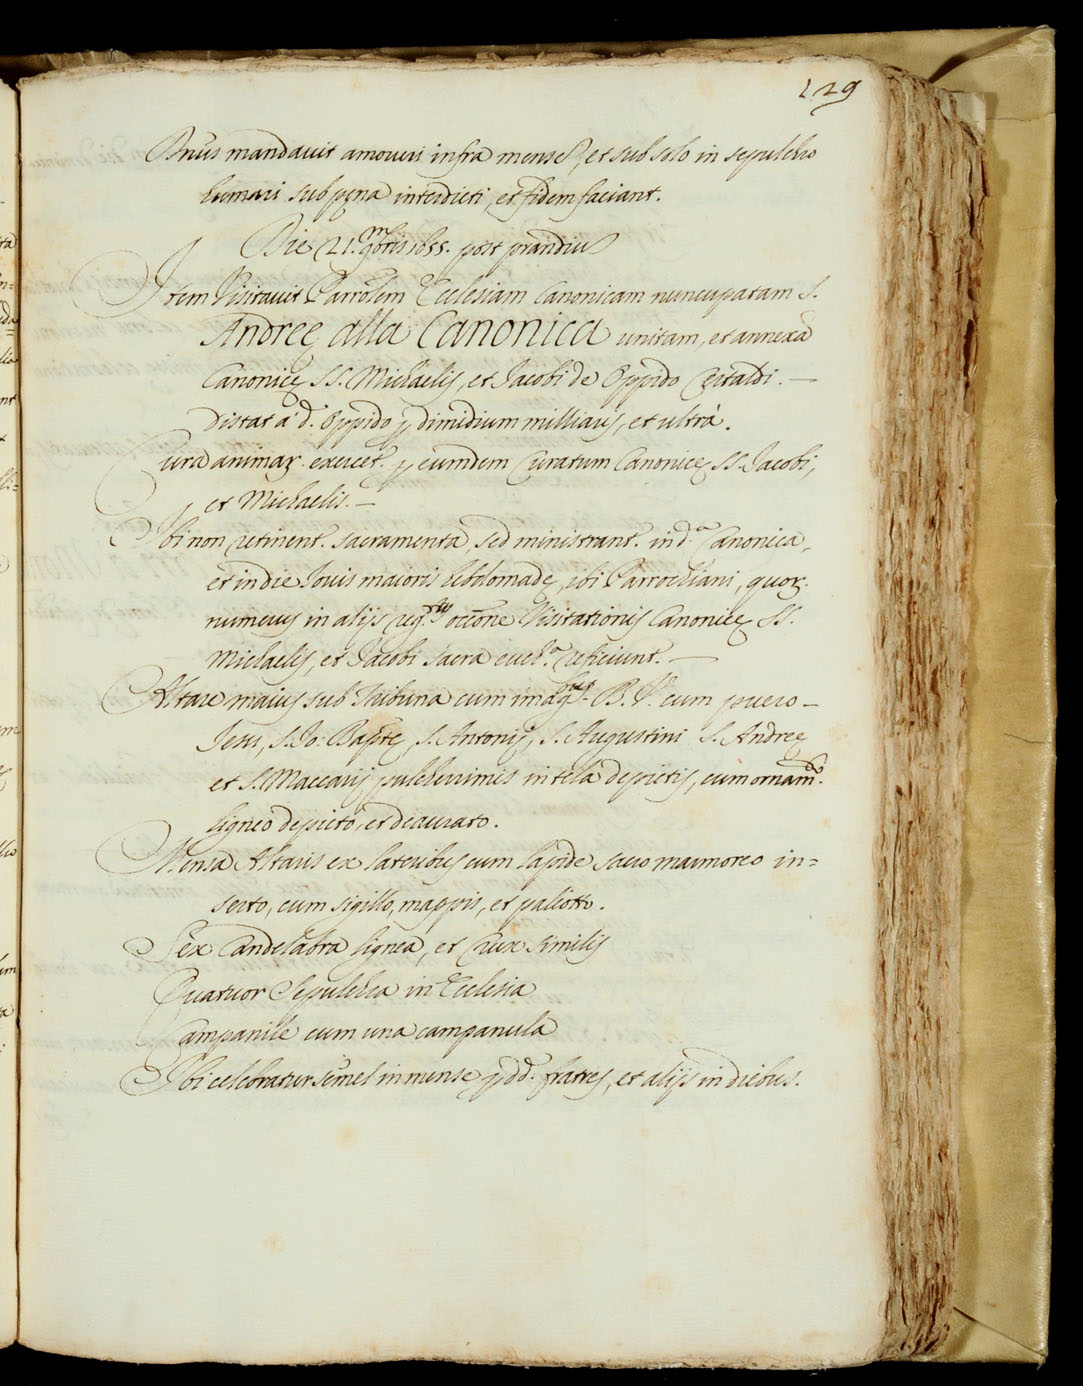 129
Dnūs mandavit amoveri infra mensē, et sub solo in sepulchro
humari sub pęna interdicti, et fidem faciant.
Die 21. 9bris 1655. post prandiū
Item Visitavit Parrōlem Ecclesiam Canonicam nuncupatam S.
Andreę alla Canonica unitam, et annexā
Canonicę SS. Michaelis, et Jacobi de Oppido Certaldi. —
Distat à d. Oppido p dimidium milliaris, et ultrà.
Cura animaꝝ exercet. p eumdem Curatum Canonicę SS. Jacobi,
et Michaelis. —
Ibi non retinent. sacramenta, sed ministrant. in d.ª Canonica,
et in die Iovis maioris hebdomadę, ibi Parrochiani, quoꝝ
numerus in alijs reg.tis occōne Visitationis Canonicę SS.
Michaelis, et Jacobi sacra euch.ª reficiunt. —
Altare maius sub Tribuna cum imag.bus B. V. cum puero —
Jesu, S. Jo: Baptę, S. Antonij, S. Augustini S. Andreę
et S. Maccarij pulcherrimis in tela depictis, cum ornam.to
ligneo depicto, et deaurato.
Mensa Altaris ex lateribus cum lapide sacro marmoreo in=
serto, cum sigillo, mappis, et paliotto.
Sex Candelabra lignea, et Crux similis
Quatuor Sepulchra in Ecclesia
Campanile cum una campanula
Ibi celebratur semel in mense p dd. fratres, et alijs in diebus.